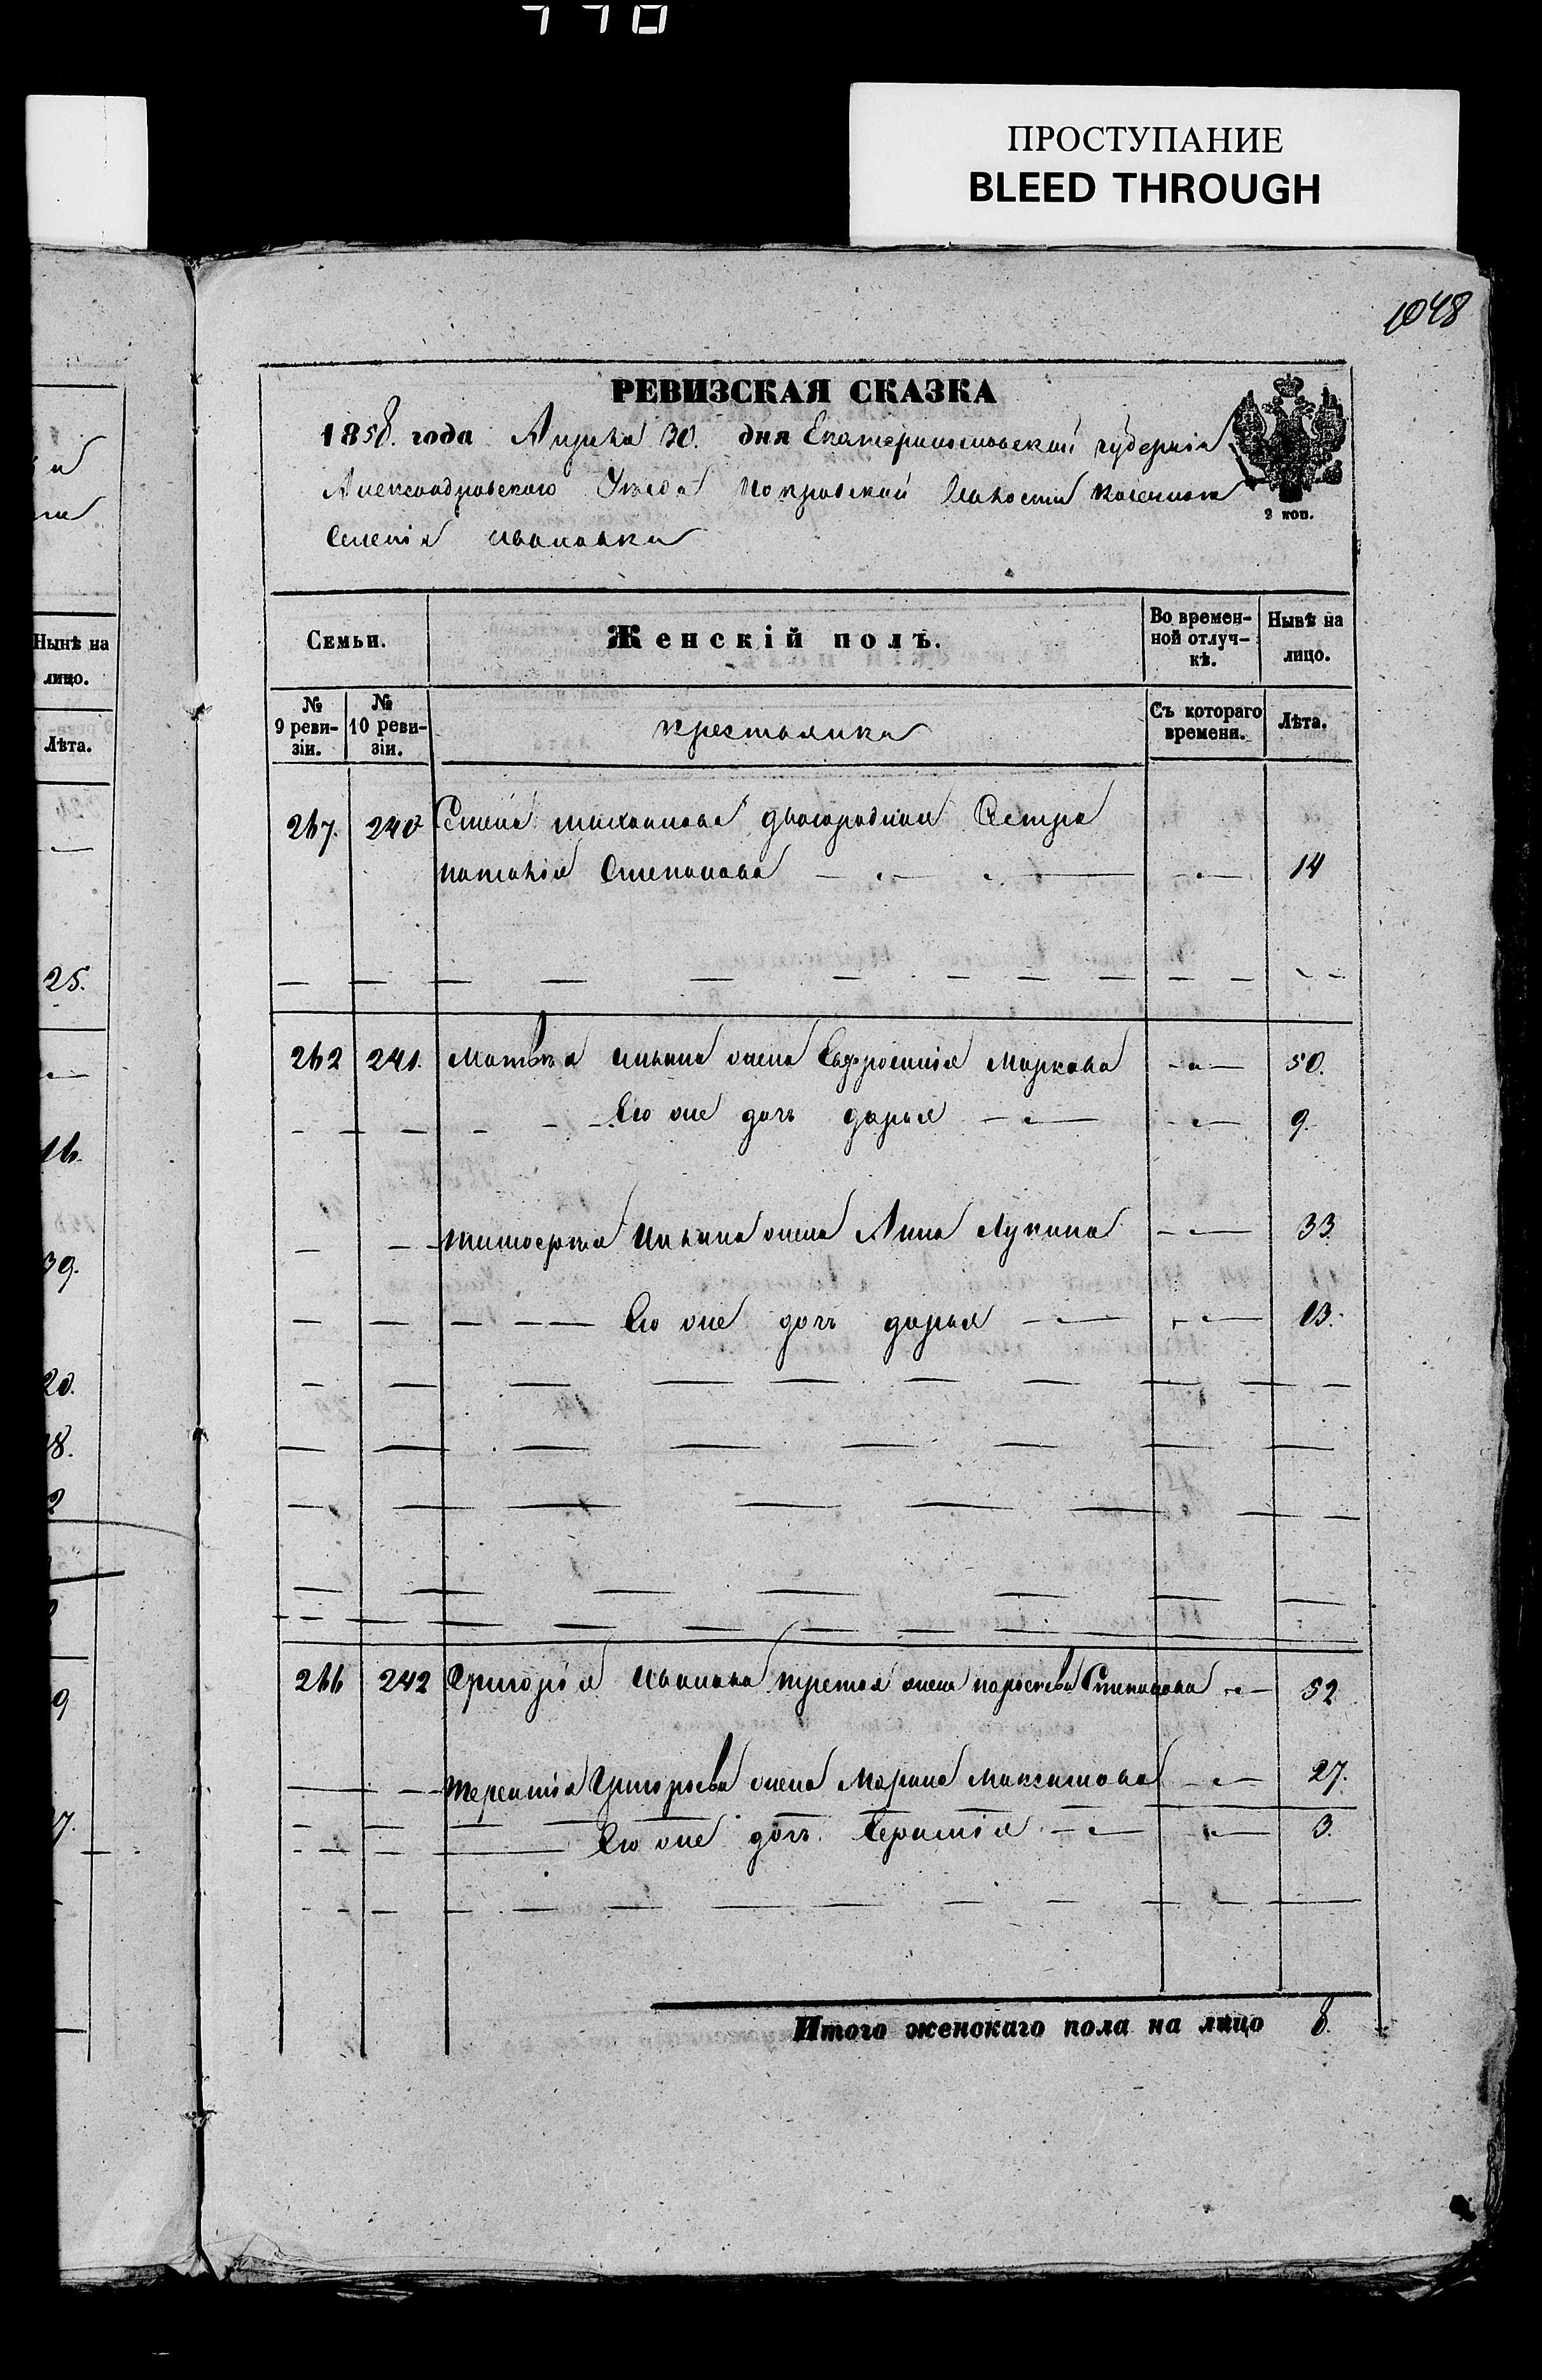 770
ПРОСТУПАНИЕ
BLEED THROUGH
1048
РЕВИЗСКАЯ СКАЗКА
1858. года Апреля 30. дня Екатеринославской губернiи
Александровского Уезда Покровской Волости Казенного
Селенiя Ивановки
2 коп.
Семьи. Женскiй полъ. Во времен-ной отлуч-кѣ. Нынѣ на лицо.
№ 9 реви-зiи. № 10 реви-зiи. крестьянка Съ котораго времени. Лѣта.
267. 240 двоюродная Сестра
Наталiя Степанова 14
262 241. Матвея Ильина жена Евфросинiя Маркова 50.
Его же дочь дарья 9.
тимофея Ильина жена Анна Лукина 33.
Его же дочь дарья 13.
266 242 Григорiя Иванова третья жена парасковья Степанова 52
терентiя Григорьева жена Марина Максимова 27.
Его же дочь 3.
Итого женскаго пола на лицо 8.
Нынѣ на
лицо.
Лѣта.
25.
16.
39.
20.
18.
2
9
7.